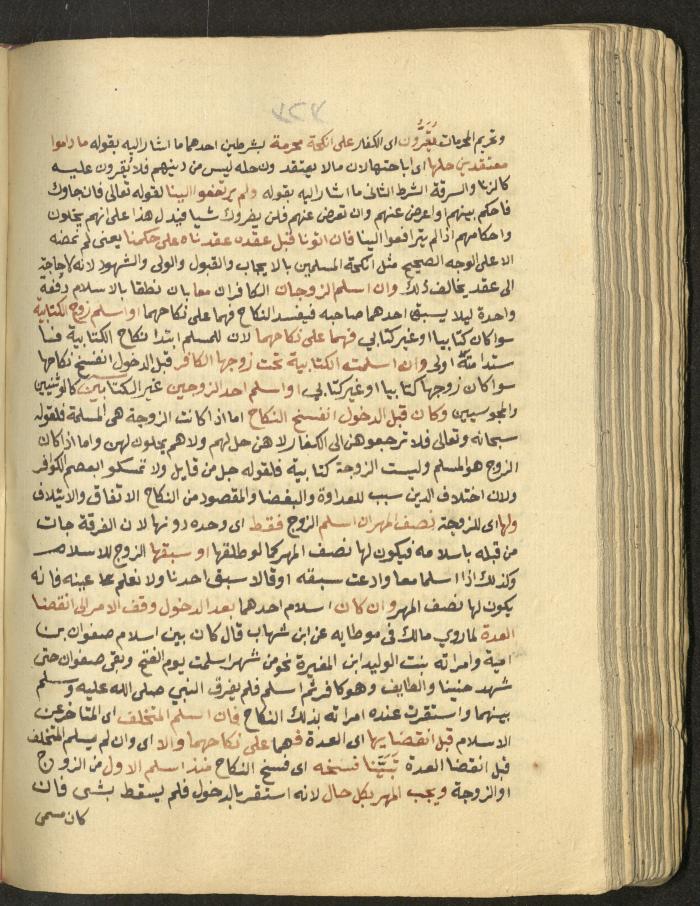 وتحريم المحرمات يُقَرُّون اى الكفار على انكحة محرمة بشرطين احدهما ما اشار اليه بقوله ما داموا
معتقدين حلها اى اباحتها لان ما لا يعتقدون حله ليس من دينهم فلا يُقرون عليه
كالزنا والسرقة الشرط الثانى ما اشار اليه بقوله ولم يرتفعوا الينا لقوله تعالى فان جاوك
فاحكم بينهم او اعرض عنهم وان تعرض عنهم فلن يضروك شيا فيدل هذا على انهم يخلون
واحكامهم اذا لم يترافعوا الينا فان اتونا قبل عقده عقدناه على حكمنا يعنى لم نمضه
الا على الوجه الصحيح مثل انكحة المسلمين بالايجاب والقبول والولى والشهود لانه لا حاجة
الى عقد يخالف ذلك وان اسلم الزوجان الكافران معا بان نطقا بالاسلام دفعة
واحدة ليلا يسبق احدهما صاحبه فيفسد النكاح فهما على نكاحهما او اسلم زوج الكتابية
سوا كان كتابيا او غير كتابى فهما على نكاحهما لان للمسلم ابتدا نكاح الكتابية فا
ستدامته اولى وان اسلمت الكتابية تحت زوجها الكافر قبل الدخول انفسخ نكاحها
سوا كان زوجها كتابيا او غير كتابى او اسلم احد الزوجين غير الكتابيين كالوثنيين
والمجوسيين وكان قبل الدخول انفسخ النكاح اما اذا كانت الزوجة هى المسلمة فلقوله
سبحانه وتعالى فلا ترجعوهن الى الكفار لا هن حل لهم ولا هم يحلون لهن واما اذا كان
الزوج هو المسلم وليست الزوجة كتابية فلقوله جل من قايل ولا تمسكوا بعصم الكوافر
ولان اختلاف الدين سبب للعداوة والبغضا والمقصود من النكاح الاتفاق والايتلاف
ولها اى للزوجة نصف المهر ان اسلم الزوج فقط اى وحده دونها لان الفرقة جات
من قبله باسلامه فيكون لها نصف المهر كما لو طلقها او سبقها الزوج للاسلام
وكذلك اذا اسلما معا وادعت سبقه او قالا سبق احدنا ولا نعلم عينه فانه
يكون لها نصف المهر وان كان اسلام احدهما بعد الدخول وقف الامر الى انقضا
العدة لما روي مالك فى موطايه عن ابن شهاب قال كان بين اسلام صفوان بن
امية وامراته بنت الوليد ابن المغيرة نحو من شهر اسلمت يوم الفتح وبقى صفوان حتى
شهد حنينا والطايف وهو كافر ثم اسلم فلم يفرق النبي صلى الله عليه وسلم
بينهما واستقرت عنده امراته بذلك النكاح فان اسلم المتخلف اى المتاخر عن
الاسلام قبل انقضايها اى العدة فهما على نكاحهما والا اى وان لم يسلم المتخلف
قبل انقضا العدة تبيّنا فسخه اى فسخ النكاح منذ اسلم الاول من الزوج
او الزوجة ويجب المهر بكل حال لانه استقر بالدخول فلم يسقط بشى فان
كان مسمى